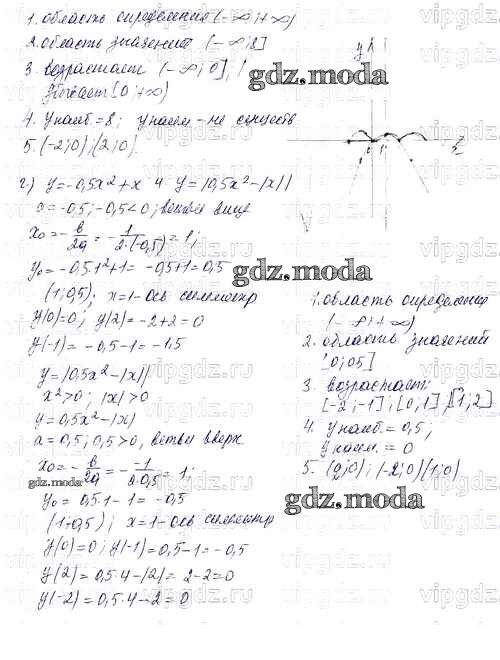 1. область определения (-∞; +∞)
2. область значений (-∞; 8]
3. возрастает (-∞; 0];
убывает [0; +∞)
4. Унаиб. = 8; унаим - не существ
5. (-2; 0); (2; 0).
г) y = -0,5x² + x и y = |0,5x² - |x||
a = -0,5; -0,5 < 0; ветви вниз
x₀ = - в/2a = - 1/2·(-0,5) = 1;
y₀ = -0,5·1² + 1 = -0,5 + 1 = 0,5
(1; 0,5); x = 1 - ось симметр
y(0) = 0; y(2) = -2 + 2 = 0
y(-1) = -0,5 - 1 = -1,5
y = |0,5x² - |x||
x² > 0; |x| > 0
y = 0,5x² - |x|
a = 0,5; 0,5 > 0, ветви вверх
x₀ = - в/2a = - -1/2·0,5 = 1;
y₀ = 0,5·1 - 1 = -0,5
(1; -0,5); x = 1 - ось симметр
y(0) = 0; y(-1) = 0,5 - 1 = -0,5
y(2) = 0,5·4 - |2| = 2 - 2 = 0
y(-2) = 0,5·4 - 2 = 0
y
x
1. область определения
(-∞; +∞)
2. область значений
[0; 0,5]
3. возрастает:
[-2; -1]; [0; 1] [1; 2]
4. Унаиб. = 0,5;
Унаим. = 0
5. (0; 0); (-2; 0) (1; 0)
gdz.moda
gdz.moda
gdz.moda
gdz.moda
vipgdz.ru